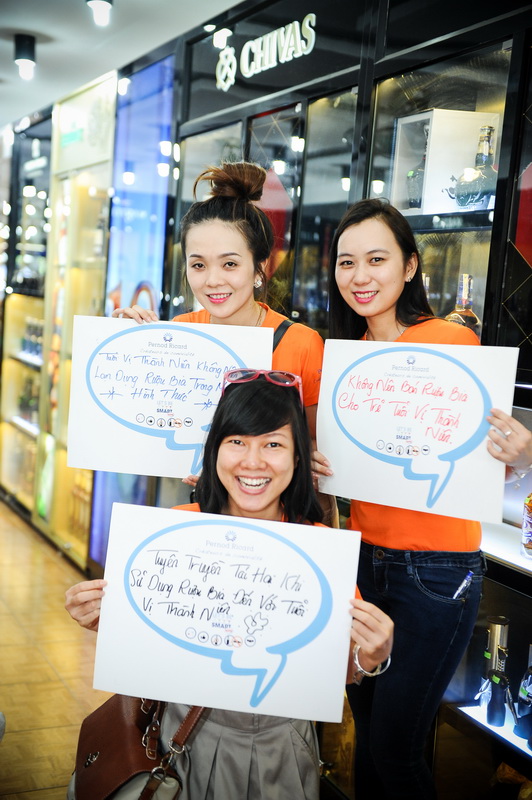 CHIVAS
Pernod Ricard
Tuổi Vị Thành Niên Không Nên
Lạm Dụng Rượu Bia Trong
Hình Thức
SMART
Pernod Ricard
Không Nên Bán Rượu Bia
Cho Trẻ Tuổi Vị Thành
Niên.
SMART
Pernod Ricard
Tuyên Truyền Tác Hại Khi
Sử Dụng Rượu Bia Đến Với Tuổi
Vị Thành Niên
SMART